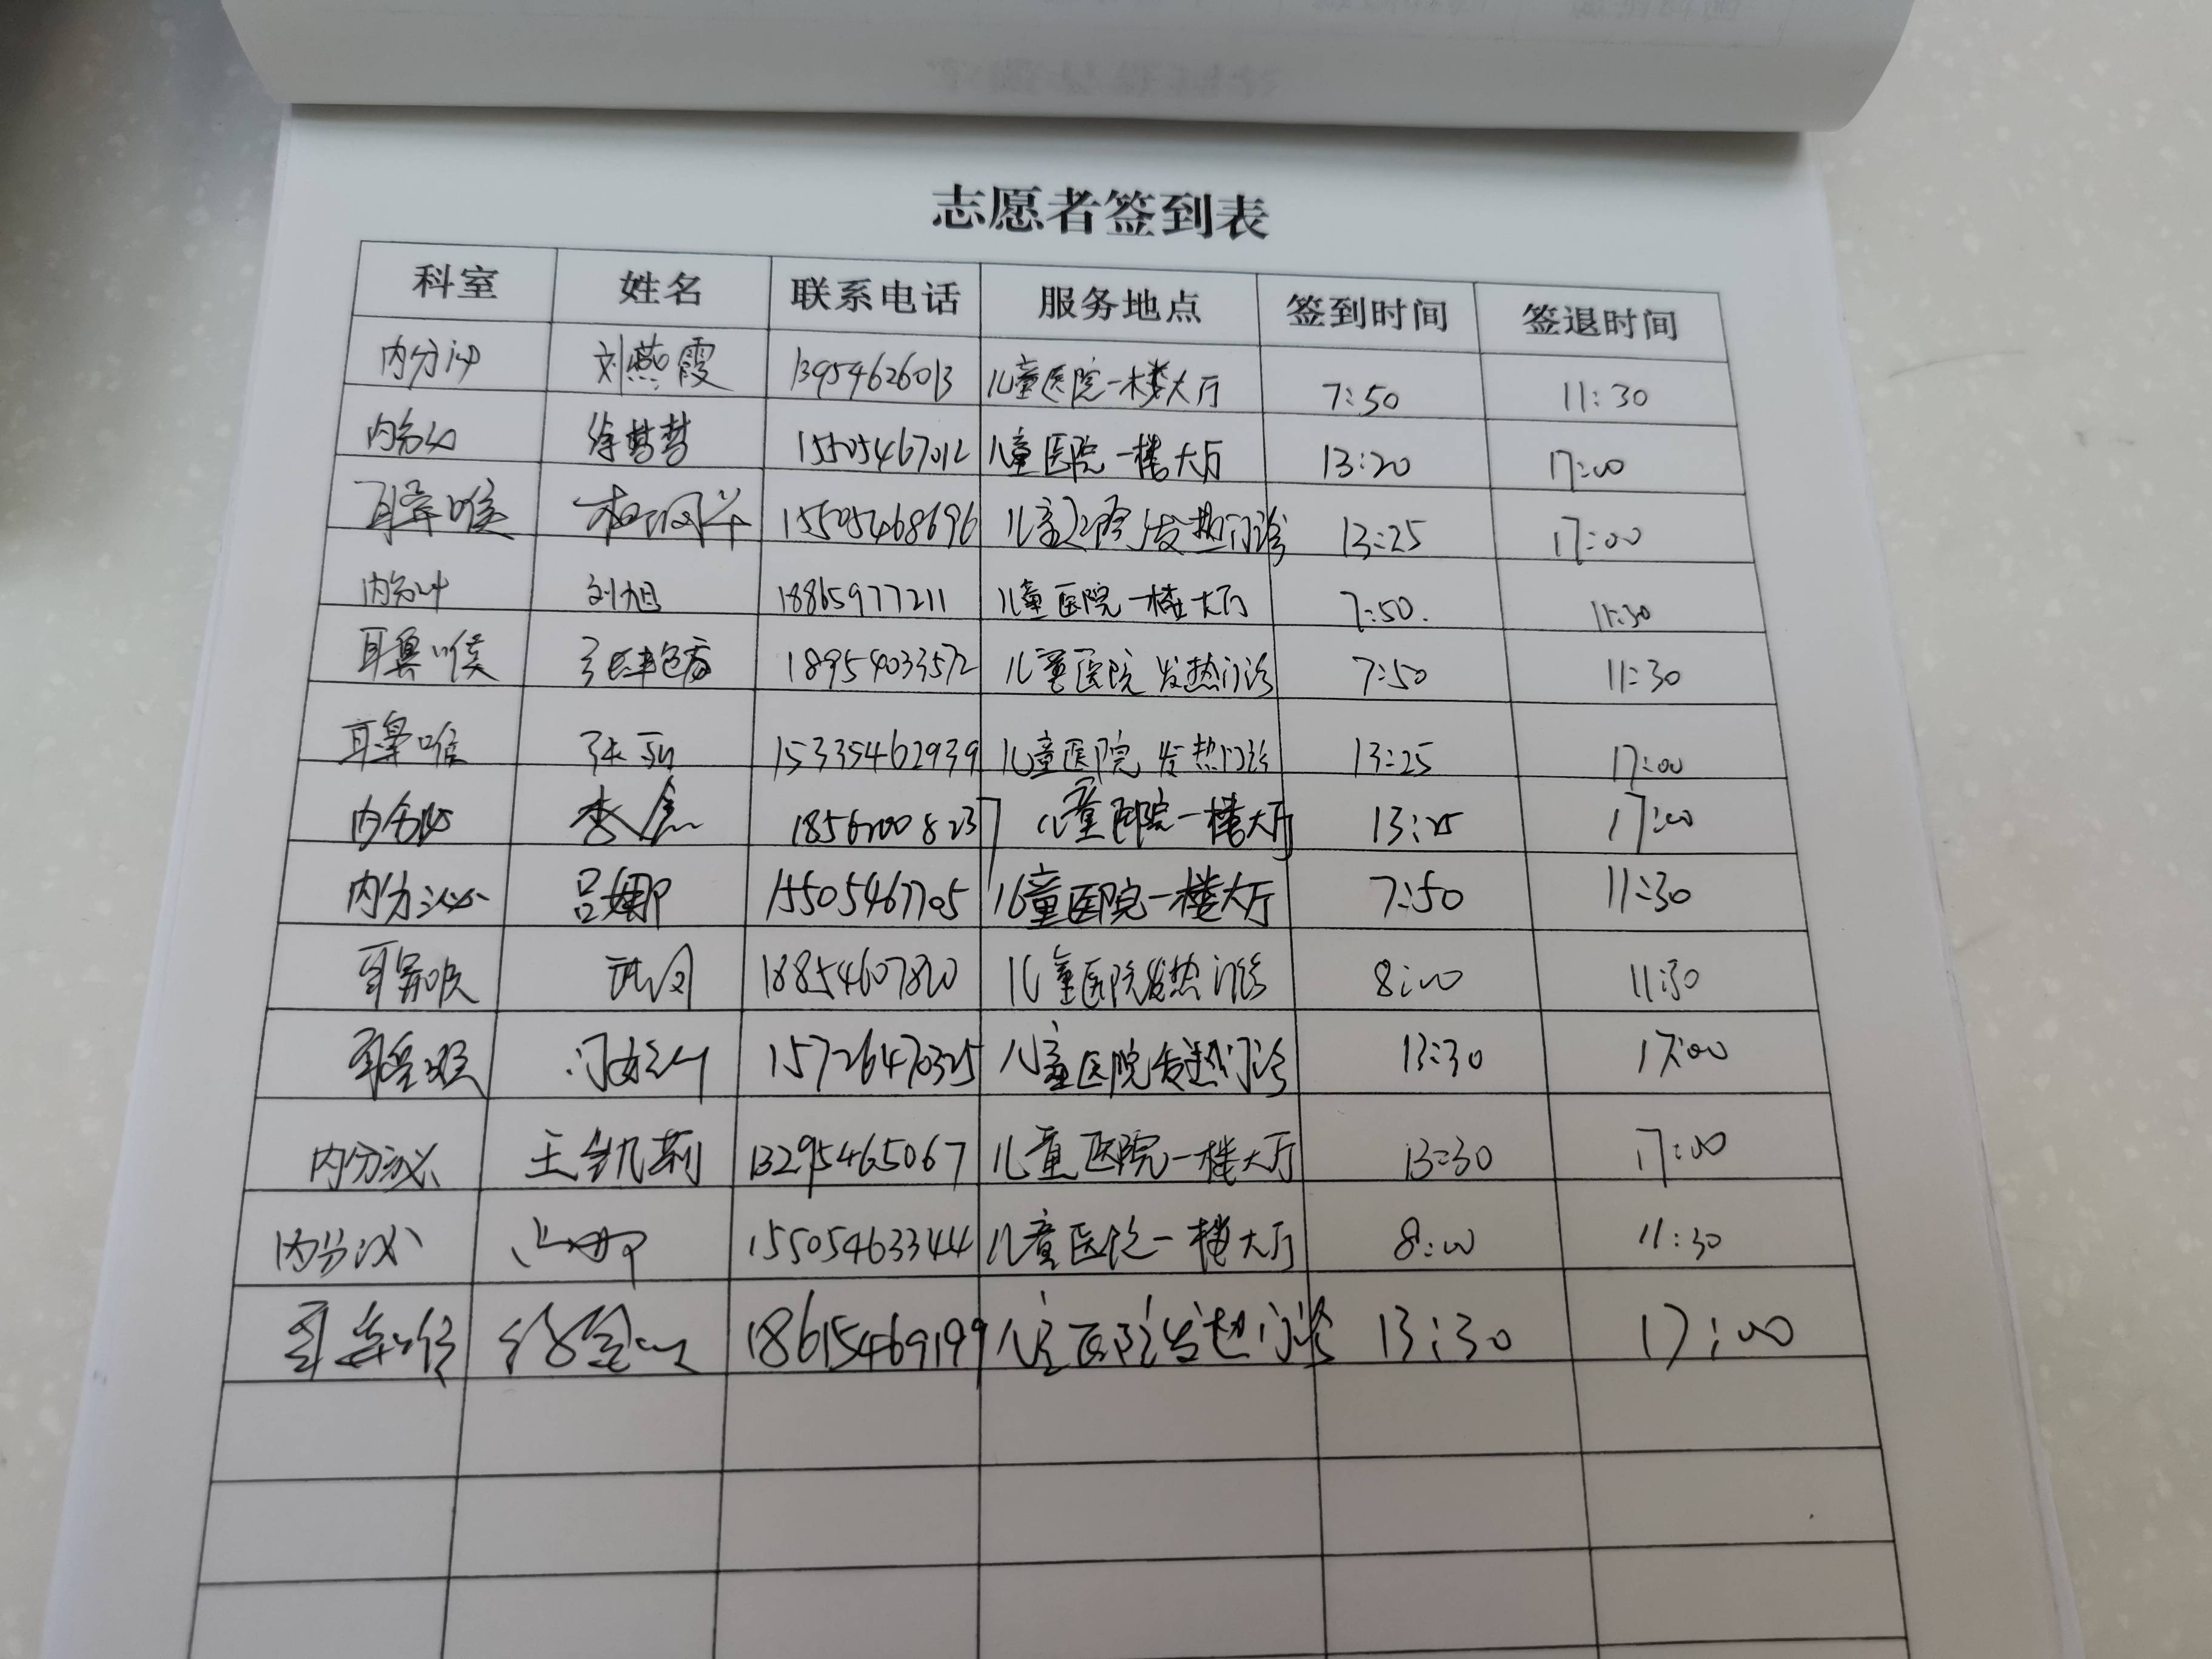 志愿者签到表
科室 姓名 联系电话 服务地点 签到时间 签退时间
内分泌 刘燕霞 13954626013 儿童医院一楼大厅 7:50 11:30
内分泌 徐梦梦 15505467012 儿童医院一楼大厅 13:20 17:00
耳鼻喉 15505468696 儿童医院发热门诊 13:25 17:00
内分泌 刘旭 18865977211 儿童医院一楼大厅 7:50. 11:30
耳鼻喉 18954033572 儿童医院发热门诊 7:50 11:30
耳鼻喉 15335462939 儿童医院发热门诊 13:25 17:00
内分泌 18562008237 儿童医院一楼大厅 13:25 17:00
内分泌 吕娜 15505467705 儿童医院一楼大厅 7:50 11:30
耳鼻喉 18854607820 儿童医院发热门诊 8:00 11:30
耳鼻喉 15726470325 儿童医院发热门诊 13:30 17:00
内分泌 王凯莉 13295465067 儿童医院一楼大厅 13:30 17:00
内分泌 15505463344 儿童医院一楼大厅 8:00 11:30
耳鼻喉 18615469199 儿童医院发热门诊 13:30 17:00